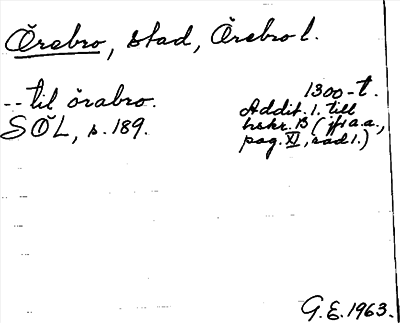 Örebro, stad, Örebro l.
1300-t.
-- til örabro.
Addit. 1. till
SÖL, s. 189.
hskr. B (jfr a.a.,
pag. XI, rad 1.)
G.E. 1963.